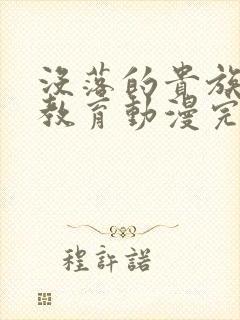 没落的貴族
教育動漫完
程許諾